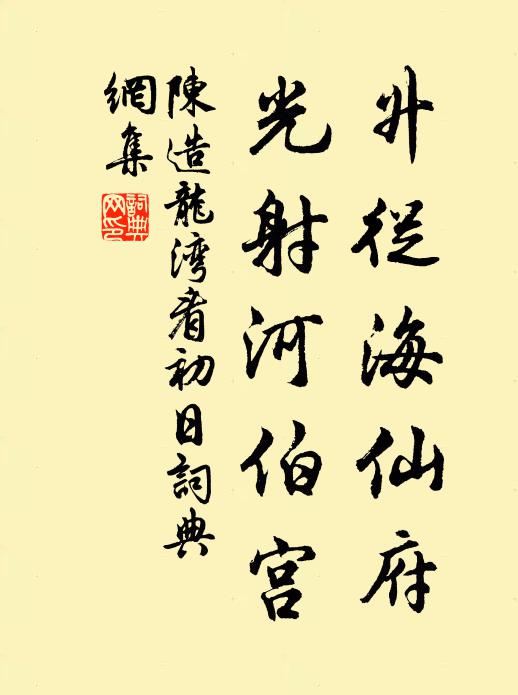 升從海仙府
光射河伯宫
陳造龍湾看初日詞典
網集
詞典
网印